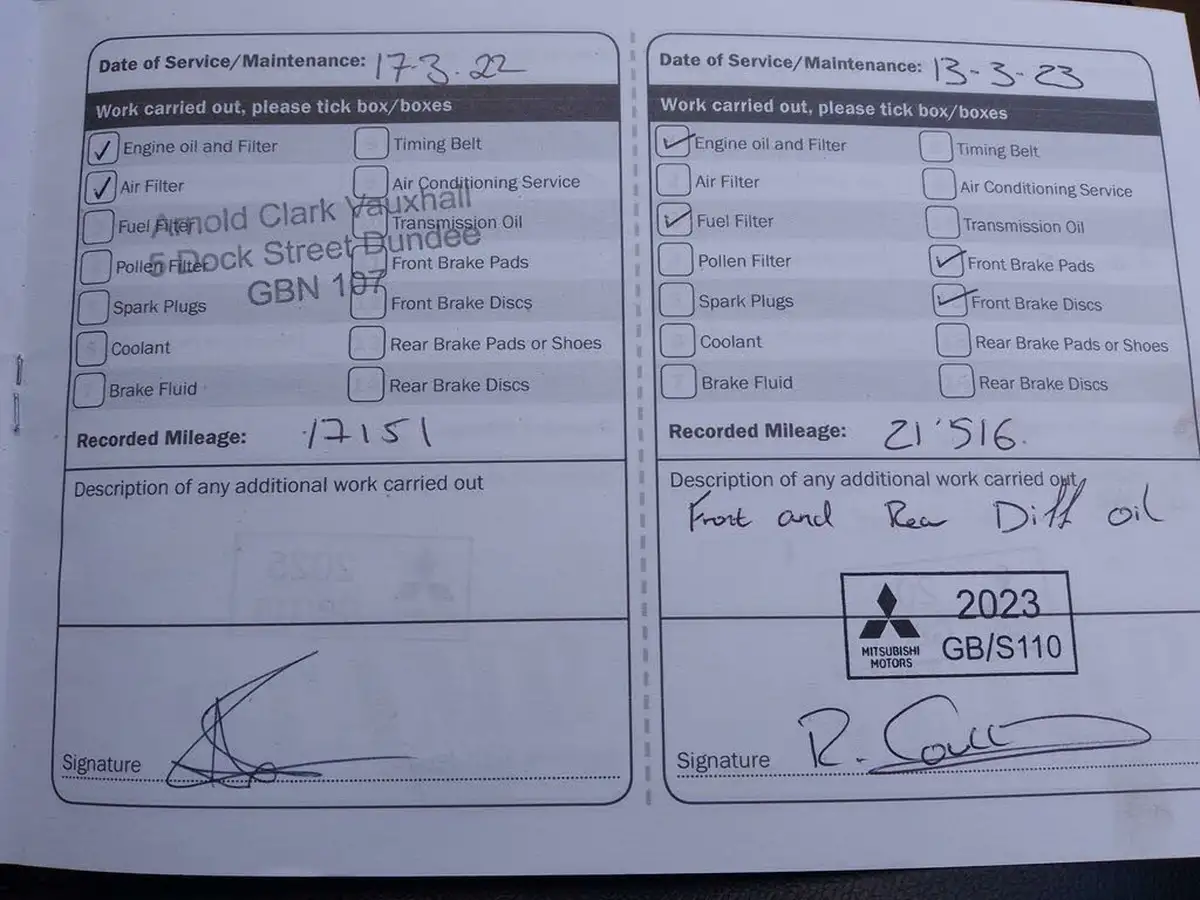 Date of Service/Maintenance: 17-3.22
Work carried out, please tick box/boxes
✓ Engine oil and Filter
Timing Belt
✓ Air Filter
Air Conditioning Service
Fuel Filter
Transmission Oil
Pollen Filter
Front Brake Pads
Spark Plugs
Front Brake Discs
Coolant
Rear Brake Pads or Shoes
Brake Fluid
Rear Brake Discs
Arnold Clark Vauxhall
5 Dock Street Dundee
GBN 107
Recorded Mileage: 17151
Description of any additional work carried out
Signature
Date of Service/Maintenance: 13-3-23
Work carried out, please tick box/boxes
✓ Engine oil and Filter
Timing Belt
Air Filter
Air Conditioning Service
✓ Fuel Filter
Transmission Oil
Pollen Filter
✓ Front Brake Pads
Spark Plugs
✓ Front Brake Discs
Coolant
Rear Brake Pads or Shoes
Brake Fluid
Rear Brake Discs
Recorded Mileage: 21'516.
Description of any additional work carried out
Front and Rea Diff oil
2023
GB/S110
MITSUBISHI
MOTORS
Signature R.